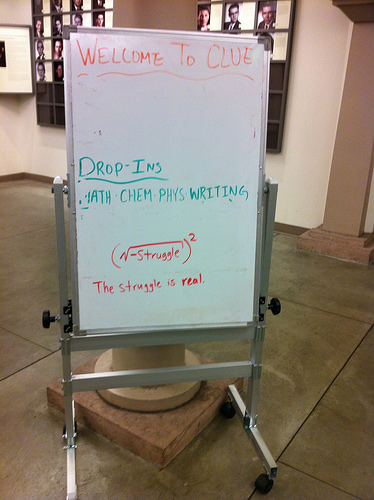 WELCOME TO CLUE
DROP-INS
MATH · CHEM · PHYS · WRITING
(√-struggle)²
The struggle is real.